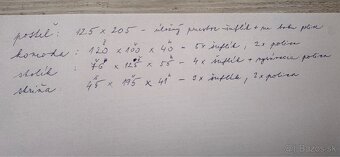 posteľ: 125 x 205 - úložný priestor šuplík + na boku polica
komoda: 120 x 100 x 40 - 5x šuplík, 2x polica
stolík: 76 x 125 x 55 - 4x šuplík + polica
skriňa: 45 x 195 x 41 - 2x šuplík, 2x polica
© Bazos.sk